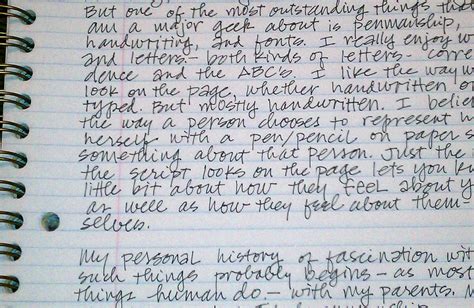 But one of the most outstanding things tha
am a major geek about is penmanship,
handwriting, and fonts. I really enjoy w
and letters - both kinds of letters - corre
dence and the ABC's. I like the way w
look on the page, whether handwritten o
typed. But mostly handwritten. I belie
the way a person chooses to represent h
herself with a pen/pencil on paper s
something about that person. Just the
the script looks on the page lets you kn
little bit about how they feel about y
as well as how they feel about them-
selves.
My personal history of fascination wit
such things probably begins - as most
things human do - with my parents. M